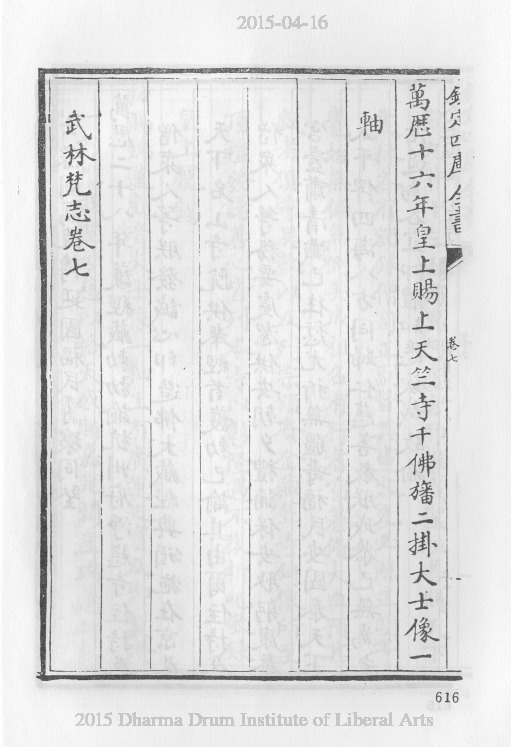 2015-04-16
欽定四庫全書
卷七
萬歷十六年皇上賜上天竺寺千佛旛二掛大士像一
軸
武林梵志卷七
616
2015 Dharma Drum Institute of Liberal Arts